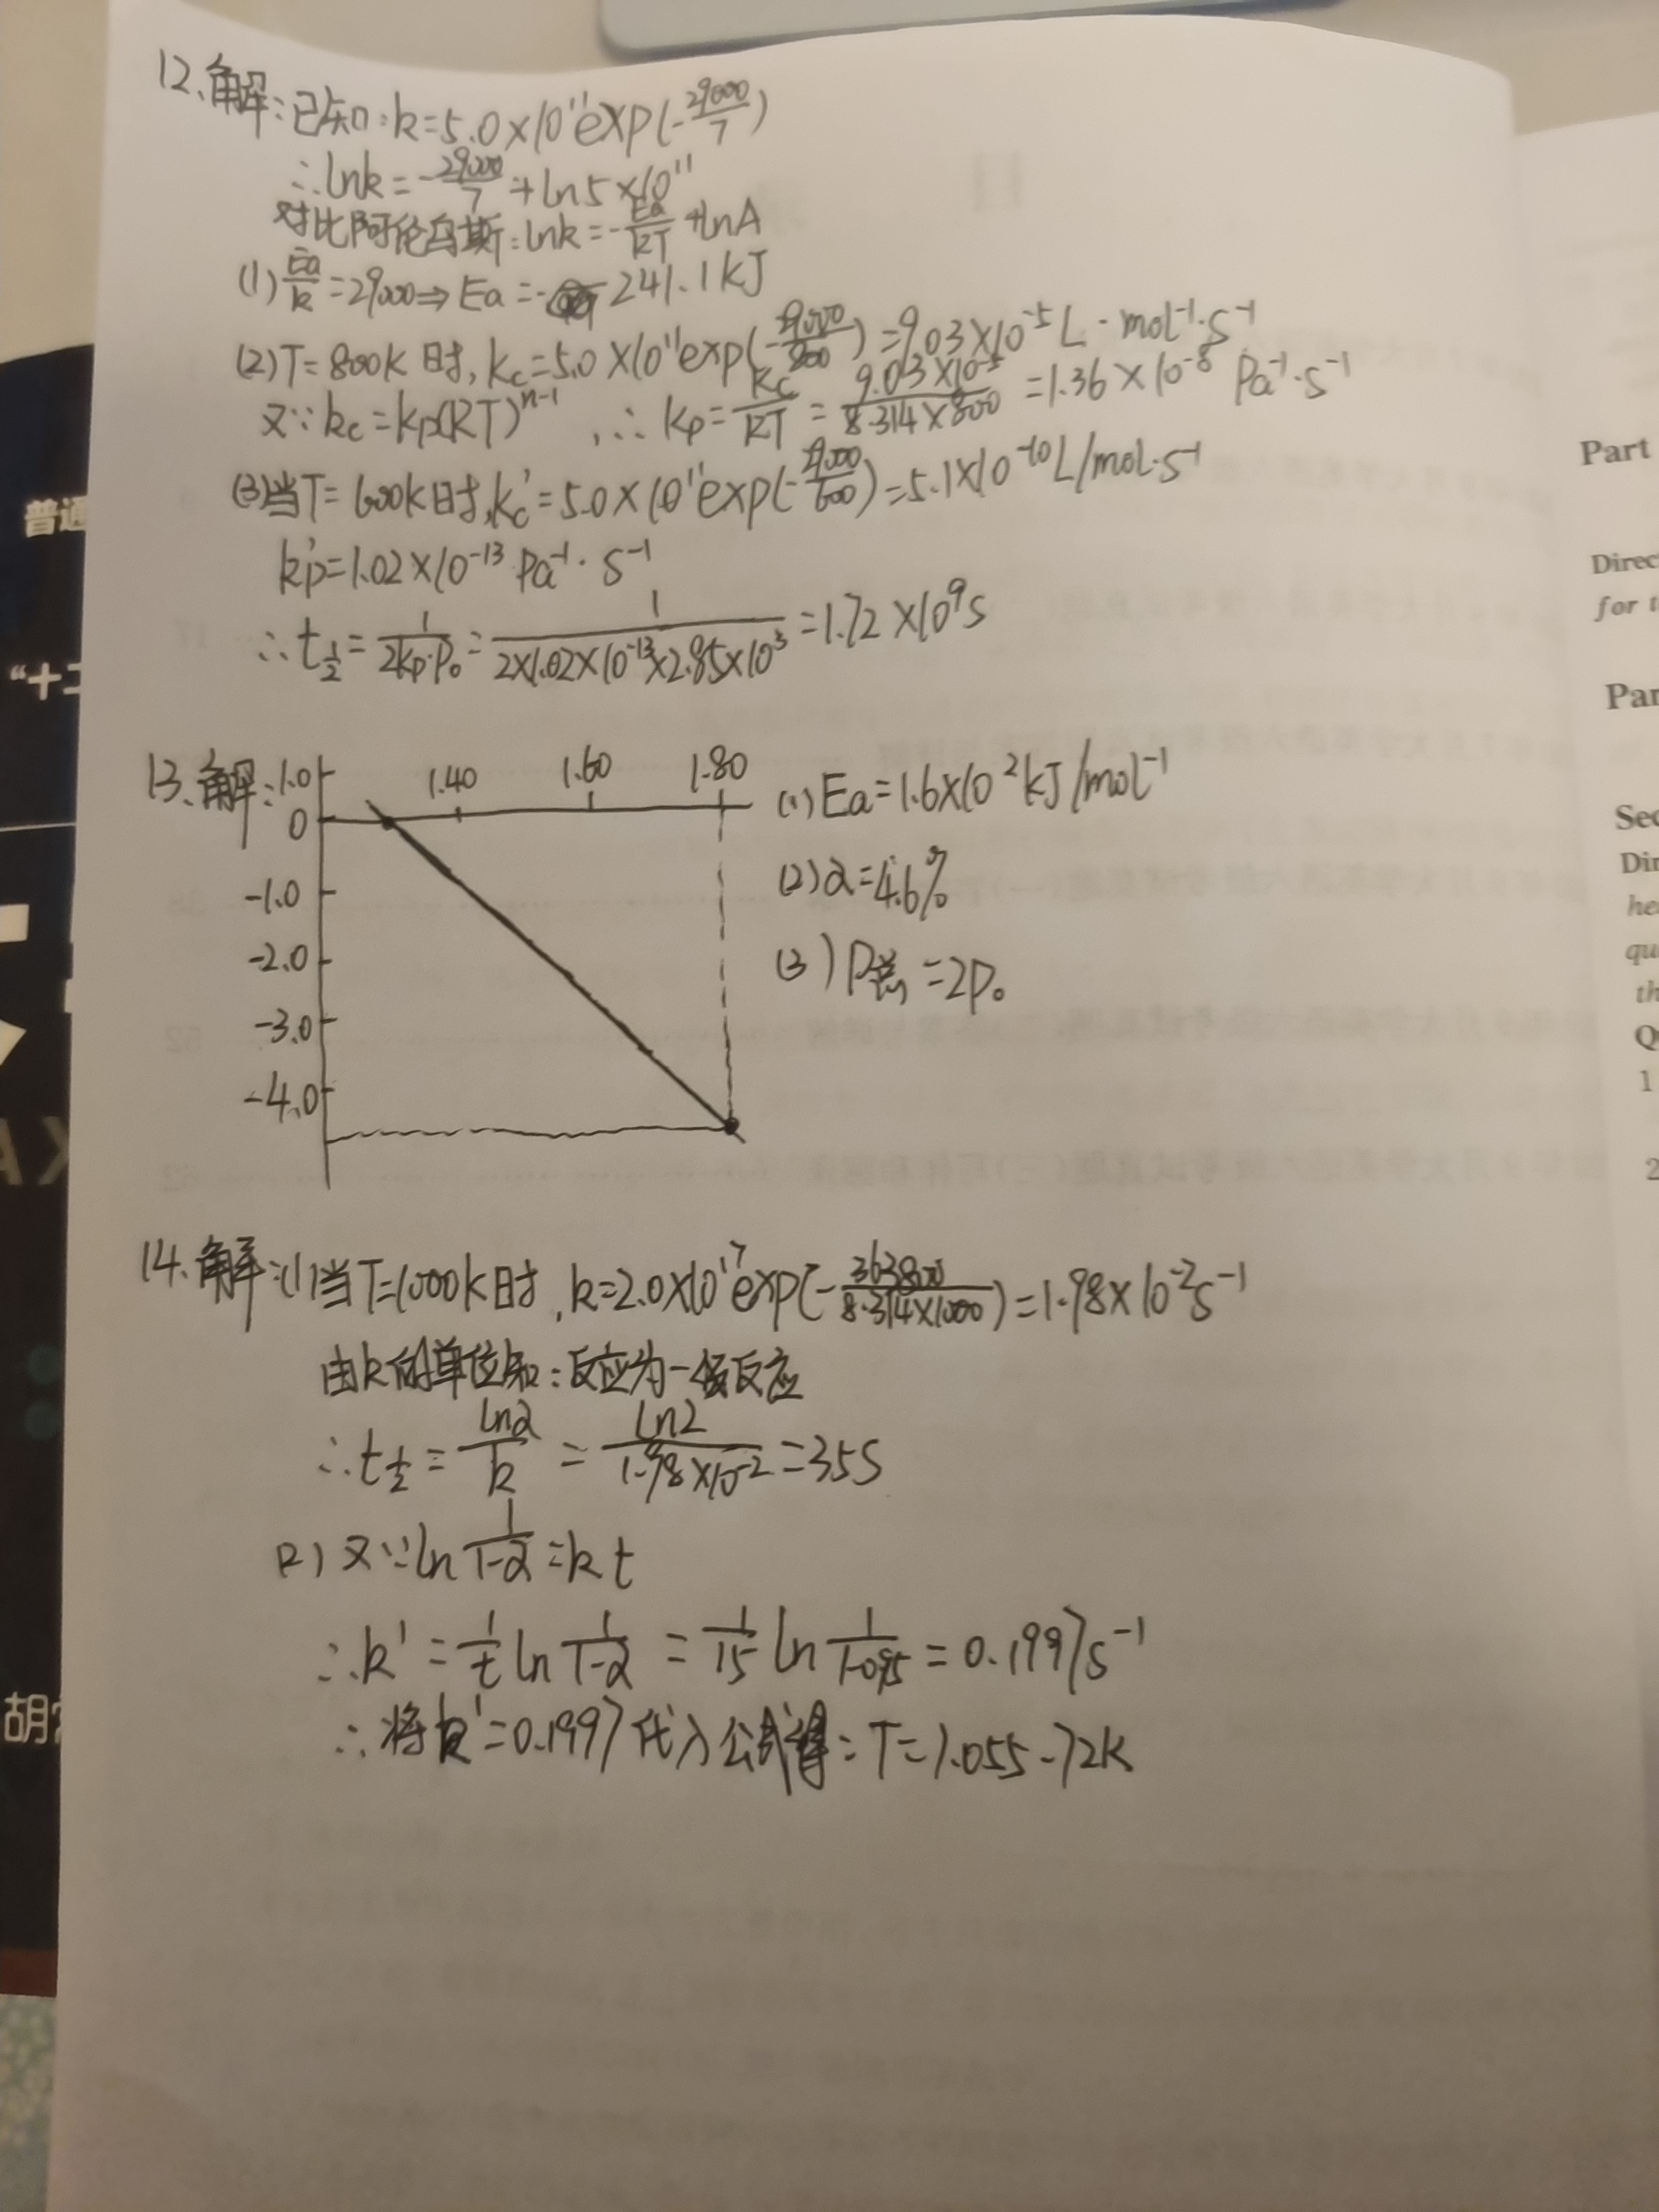 12、解：已知：k=5.0×10¹¹exp(-29000/T)
∴lnk=-29000/T+ln5×10¹¹
对比阿伦乌斯：lnk=-Ea/RT+lnA
(1) Ea/R=29000⇒Ea=241.1kJ
(2)T=800K时，kc=5.0×10¹¹exp(-29000/800)=9.03×10⁻⁵L·mol⁻¹·s⁻¹
又∵kc=kp(RT)ⁿ⁻¹，∴kp=kc/RT=9.03×10⁻⁵/8.314×800=1.36×10⁻⁸Pa⁻¹·s⁻¹
(3)当T=600K时，kc'=5.0×10¹¹exp(-29000/600)=5.1×10⁻¹⁰L/mol·s⁻¹
kp'=1.02×10⁻¹³Pa⁻¹·s⁻¹
∴t½=1/2kp·P₀=1/2×1.02×10⁻¹³×2.85×10³=1.72×10⁹s
13、解：
1.0
0
-1.0
-2.0
-3.0
-4.0
1.40 1.60 1.80
(1)Ea=1.6×10²kJ/mol⁻¹
(2)α=4.6%
(3)P总=2P₀
14、解：(1)当T=1000K时，k=2.0×10¹⁷exp(-363800/8.314×1000)=1.98×10⁻²s⁻¹
由k的单位知：反应为一级反应
∴t½=ln2/k=ln2/1.98×10⁻²=35s
(2)又∵ln1/1-α=kt
∴k'=1/t ln1/1-α=1/15 ln1/1-0.95=0.1997s⁻¹
∴将k'=0.1997代入公式得：T=1055.72K
普通
“十二
AX
胡
Part
Direc
for t
Par
Sec
Dir
hea
qu
th
Q
1
2